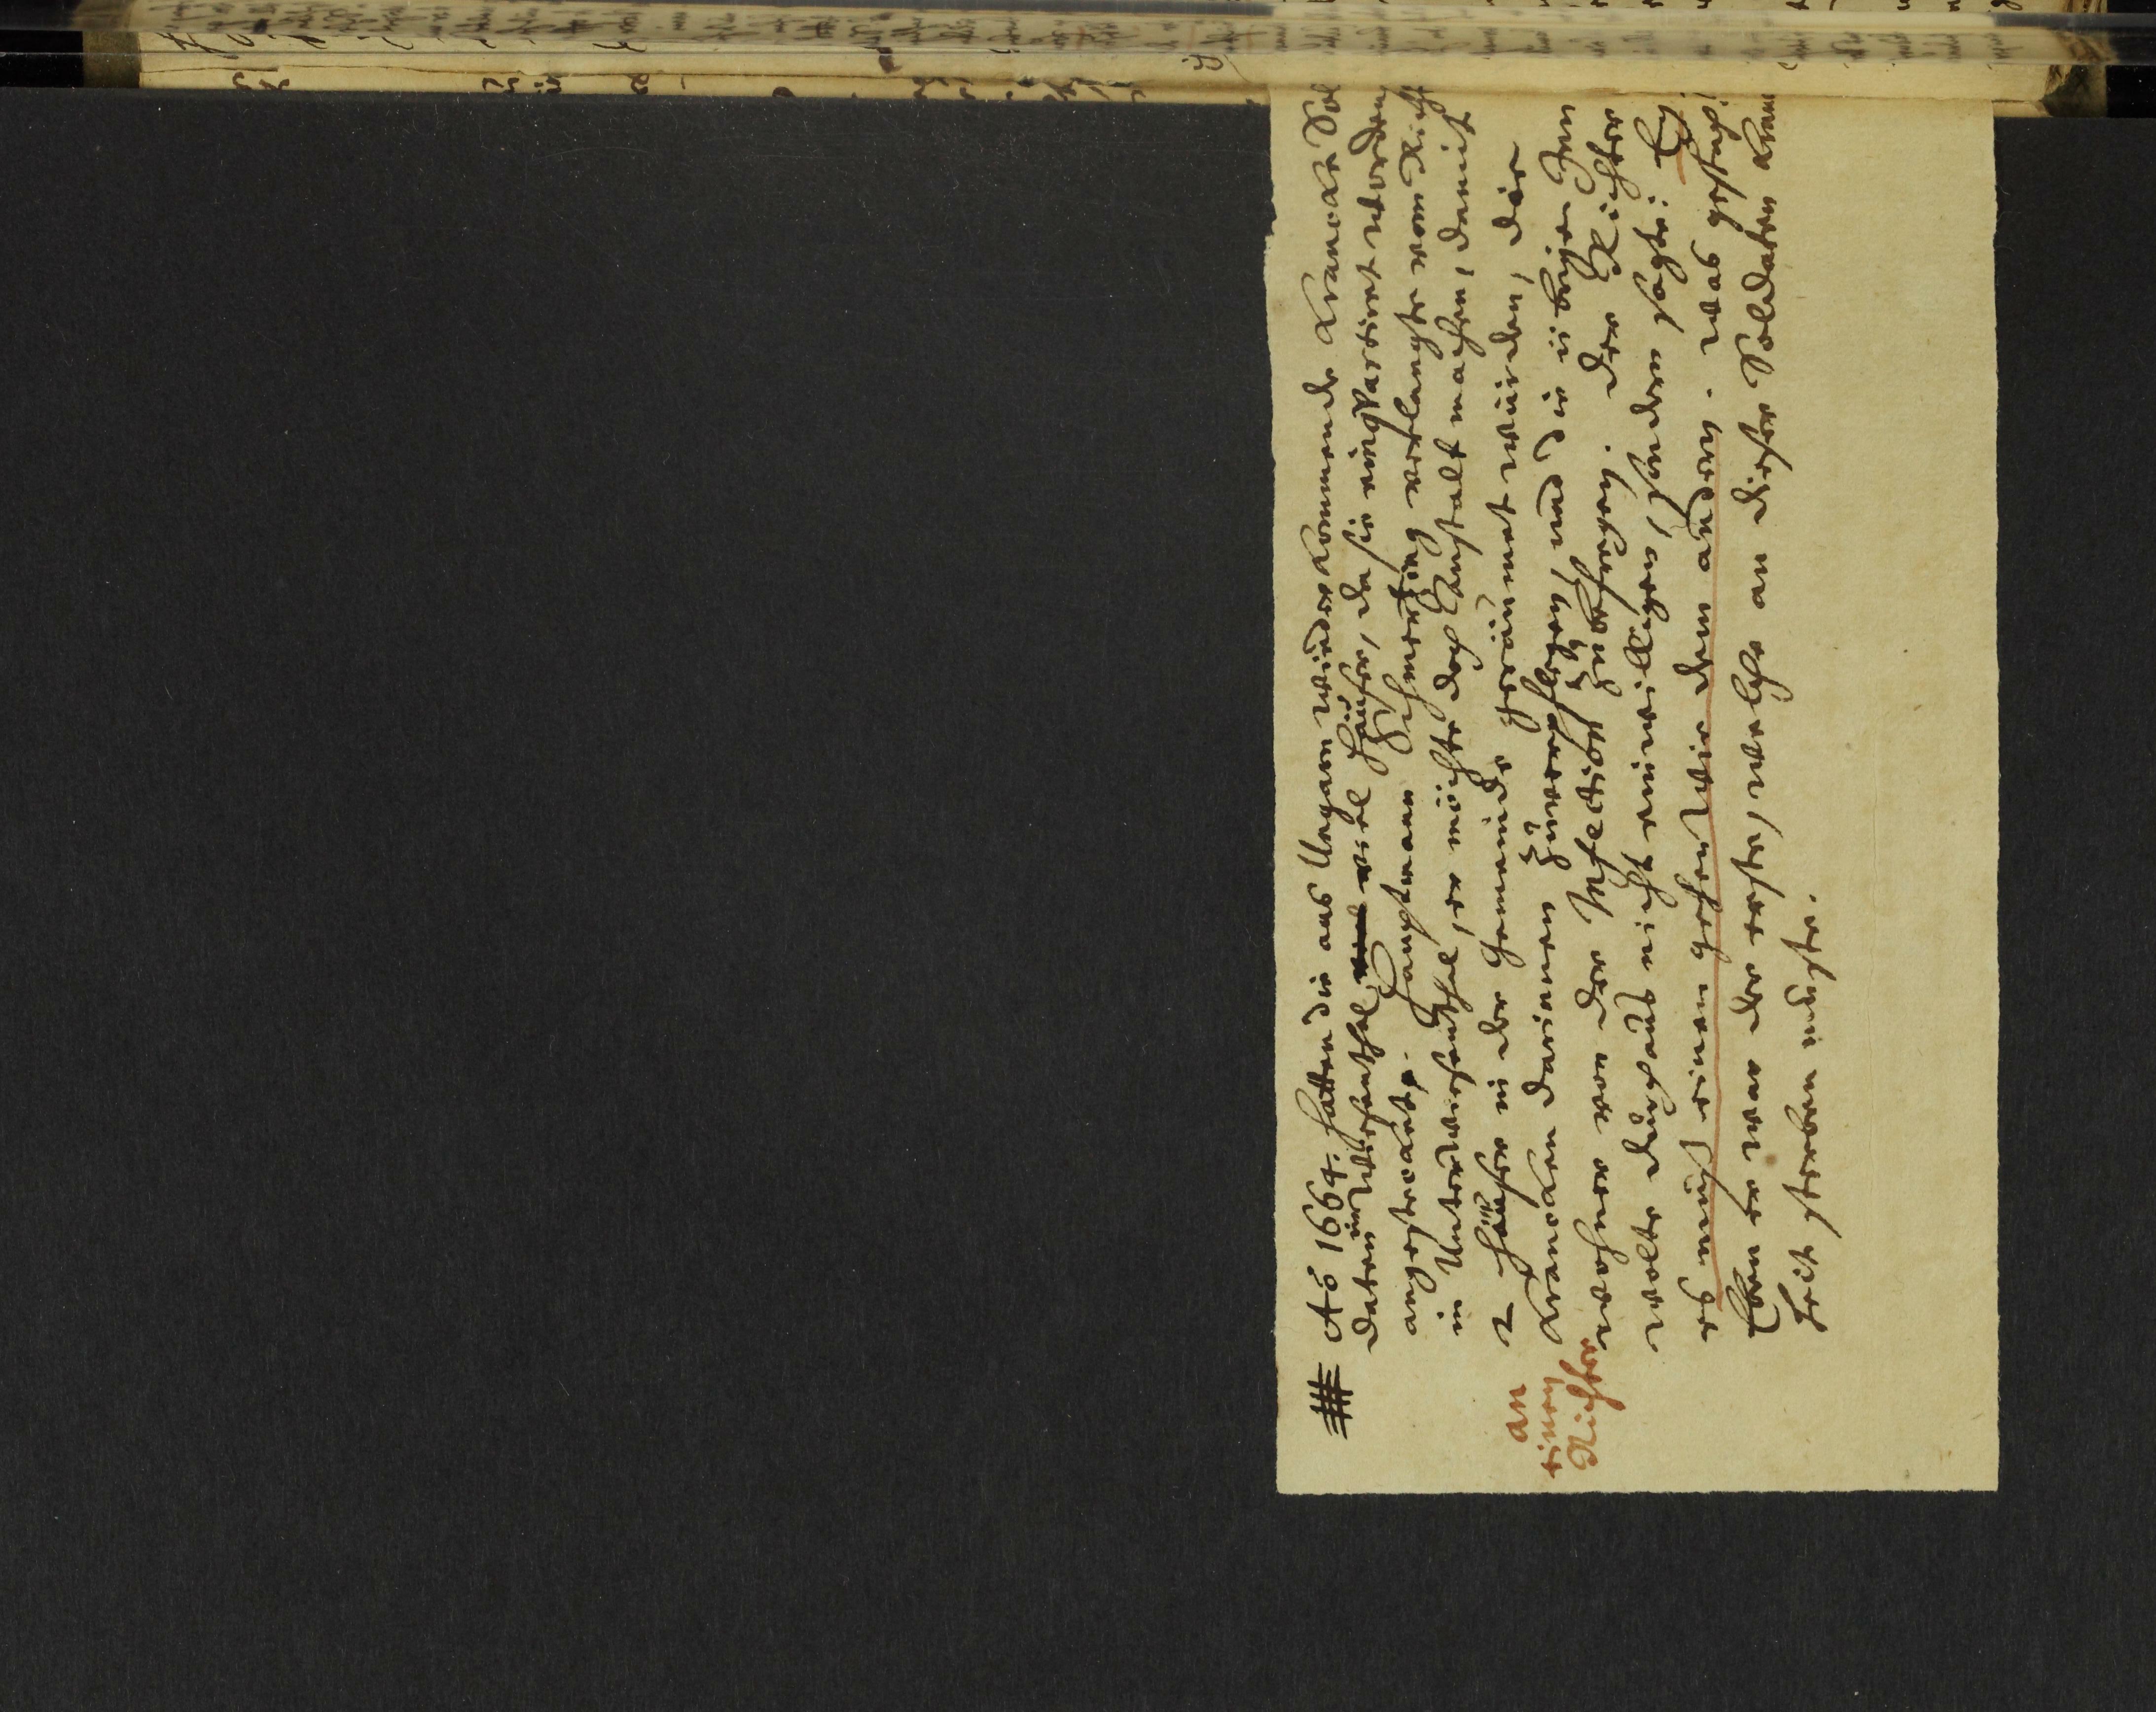 # Aō 1664. hatten die aus Ungarn wiederkommende krancke Sol
daten in Wiesenthal viel viele Häuser, da sie einqvartiret worden,
angesteckt. Hauptmann Schmerzing verlangte vom Richt
in Unterwiesenthal, er möchte doch Anstalt machen, damit
2 Häuser in der Gemeinde geräumet würden, die
Krancken darinnen zu verpflegen, und die übrigen Inn
wohner von der Infection zu befreyen. der Richter
wolte durchaus nicht einwilligen, sondern sagte: Ey!
es muß einen gehen wie dem andern. was geschah!
Eben er war der erste, welcher an dieser Soldaten kranck
heit sterben muste.
an
einen
Richter